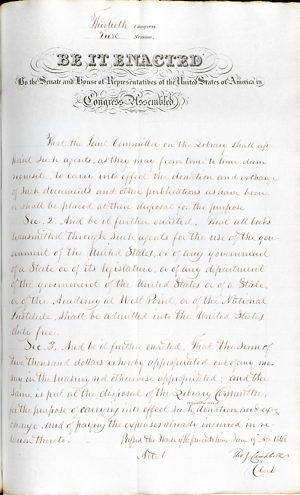 Thirtieth Congress.
First Session.
BE IT ENACTED
By the Senate and House of Representatives of the United States of America in
Congress Assembled,
That the Joint Committee on the Library shall ap
point such agents, as they may from time to time deem
to carry into effect the donation and exchange
of such documents and other publications as have been
shall be placed at their disposal for the purpose
Sec. 2. And be it further enacted, That all books
transmitted through such agents for the use of the gov
ernment of the United States, or of any government
of a State or of its legislature, or of any department
of the government of the United States or of a State,
or of the Academy at West Point, or of the National
Institute, shall be admitted into the United States
duty free.
Sec. 3. And be it further enacted, That the sum of
two thousand dollars is hereby appropriated, out of any mo
ney in the treasury not otherwise appropriated; and the
same is put at the disposal of the Library Committee,
for the purpose of carrying into effect such donation and ex
change, and of paying the expenses already incurred in re
lation thereto.
Passed the House of Representatives June 1848
Attest
Tho J. Campbell
Clerk